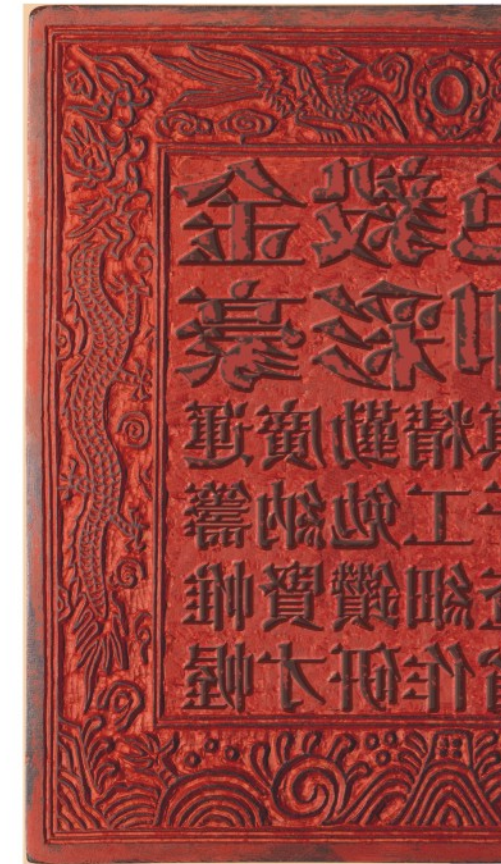 金豪
毅彩
運籌帷幄
廣納賢才
勤勉鑽研
精工細作